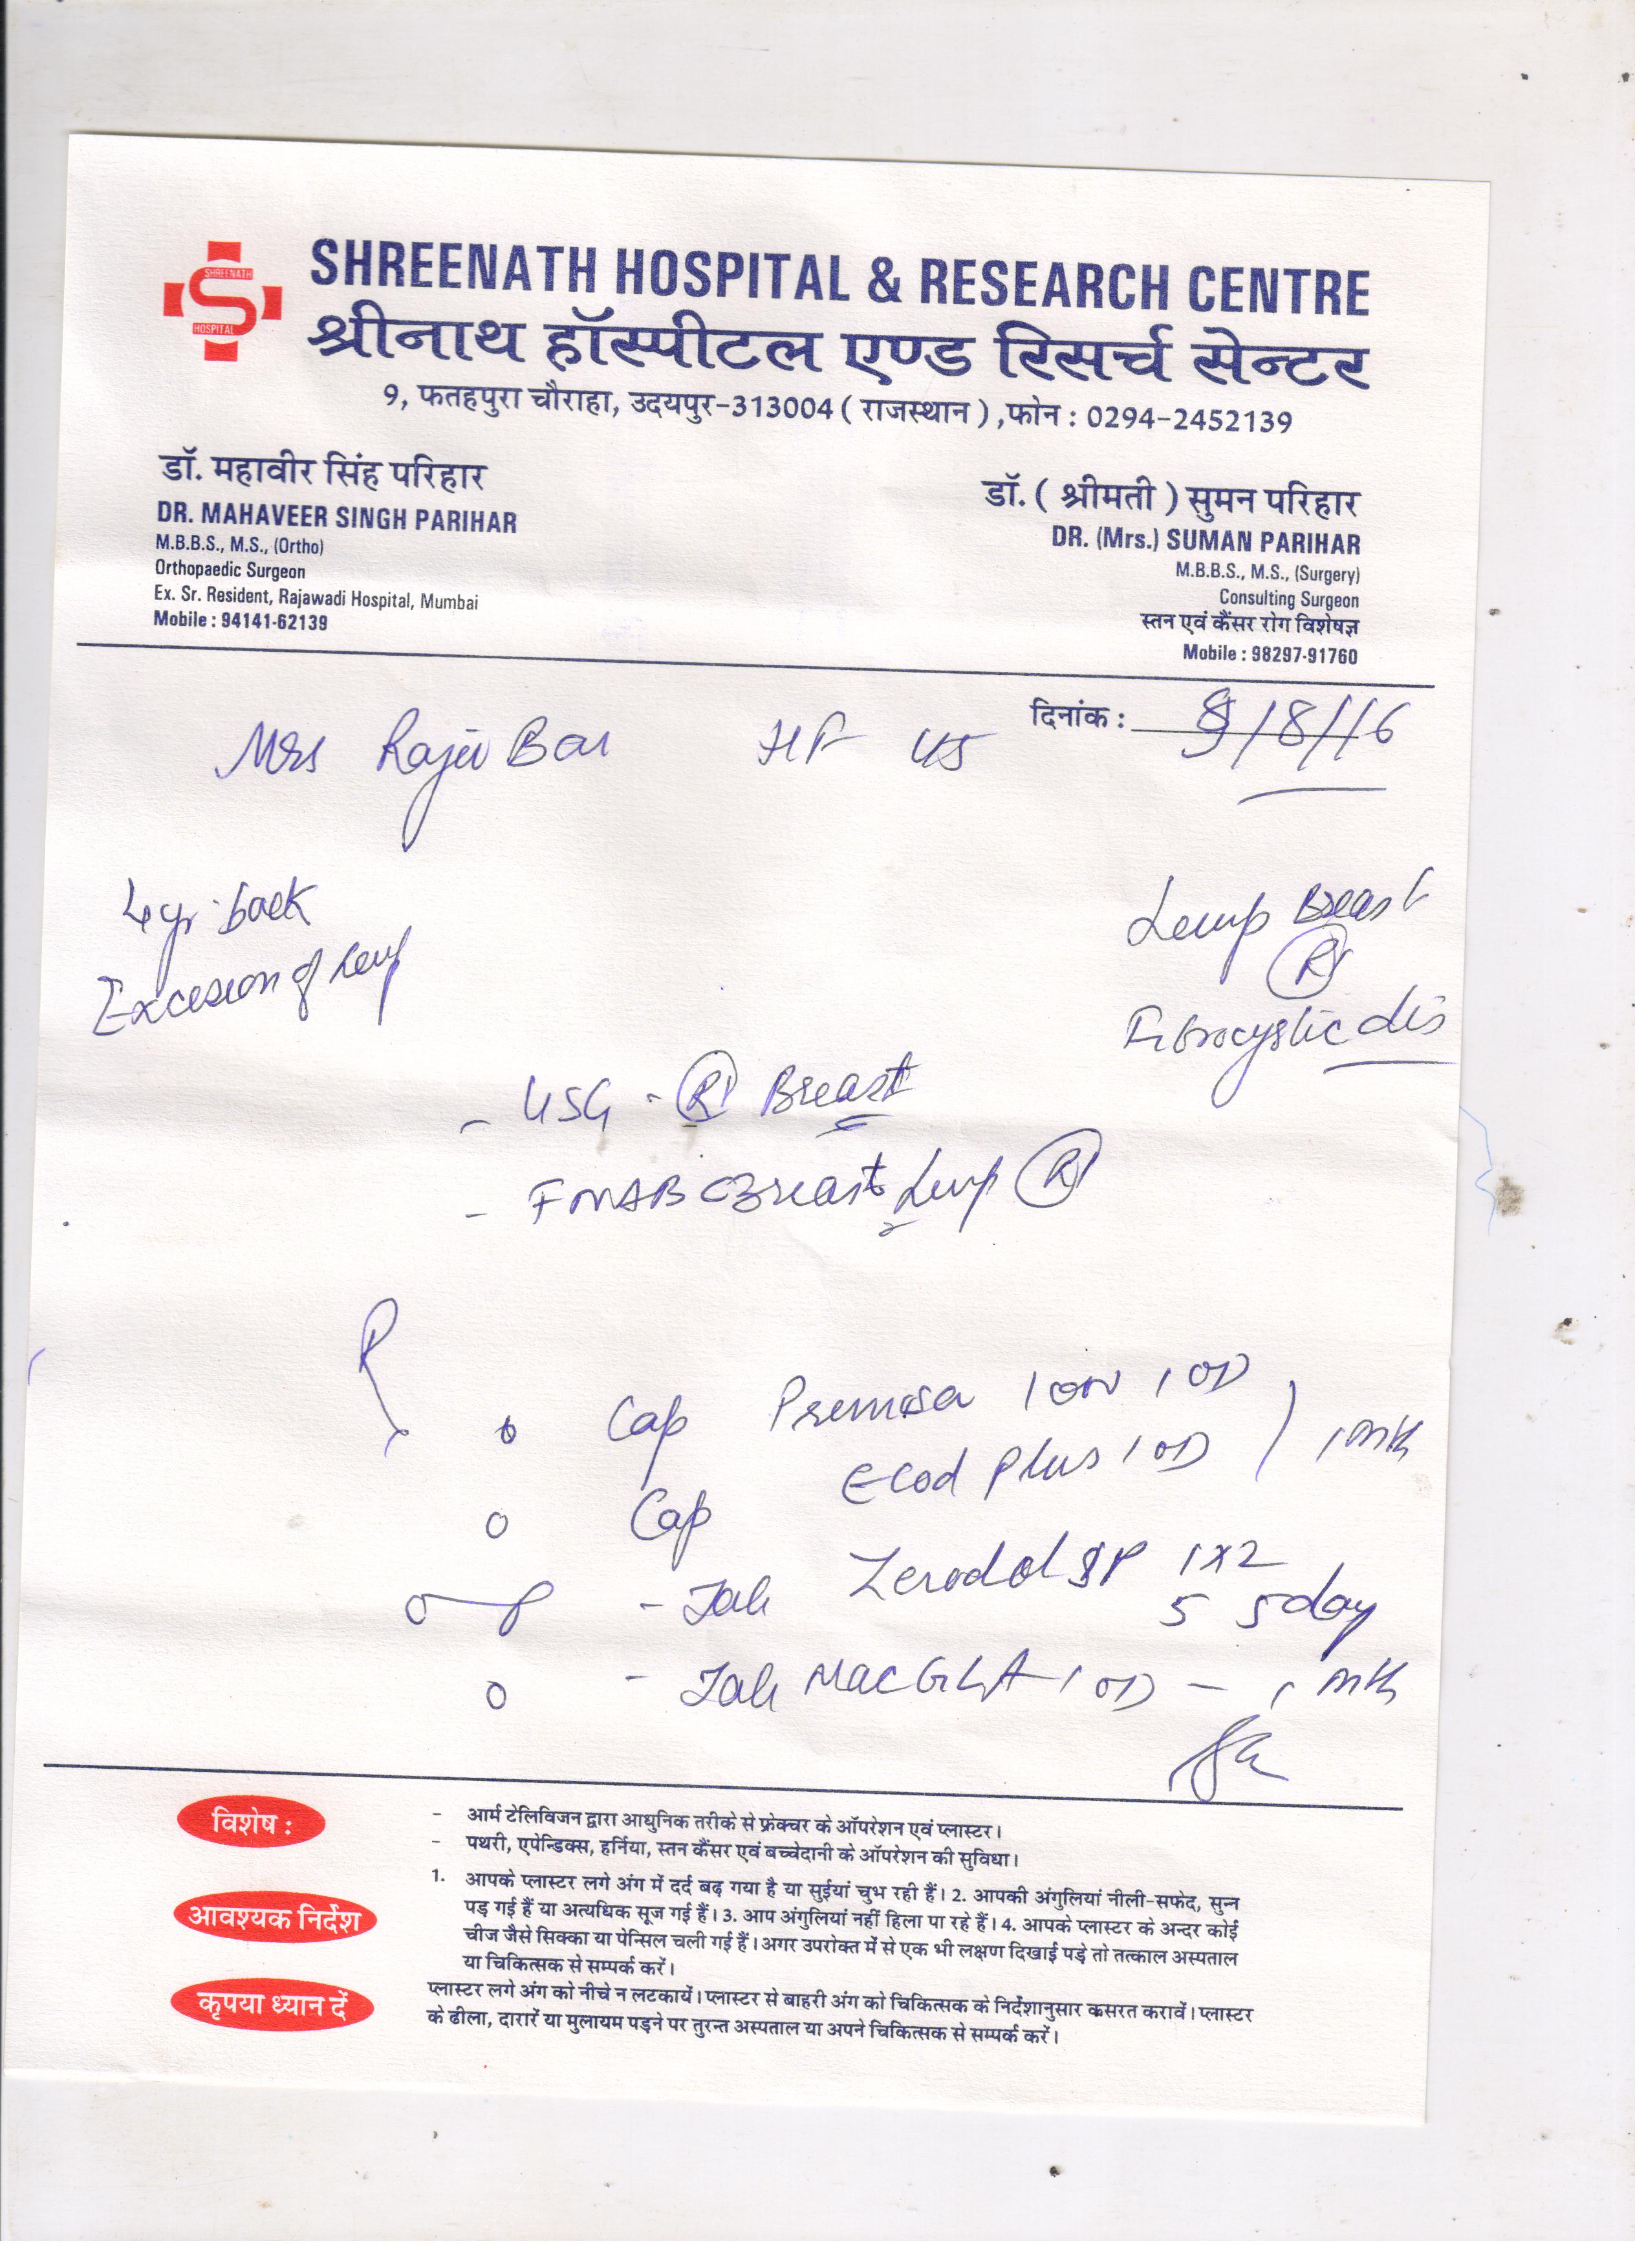 SHREENATH
HOSPITAL
SHREENATH HOSPITAL & RESEARCH CENTRE
श्रीनाथ हॉस्पीटल एण्ड रिसर्च सेन्टर
9, फतहपुरा चौराहा, उदयपुर-313004 ( राजस्थान ) ,फोन : 0294-2452139
डॉ. महावीर सिंह परिहार
DR. MAHAVEER SINGH PARIHAR
M.B.B.S., M.S., (Ortho)
Orthopaedic Surgeon
Ex. Sr. Resident, Rajawadi Hospital, Mumbai
Mobile : 94141-62139
डॉ. ( श्रीमती ) सुमन परिहार
DR. (Mrs.) SUMAN PARIHAR
M.B.B.S., M.S., (Surgery)
Consulting Surgeon
स्तन एवं कैंसर रोग विशेषज्ञ
Mobile : 98297-91760
दिनांक : 9/8/16
Mrs 45
4 yr back
Excesion of Lump
Lump Breast
Rt
Fibrocystic dis
- USG - Rt Breast
- FNAB Breast Lump Rt
R
Cap 1 OD
Cap Ecod Plus 1 OD 1 mth
- Tab Zerodol SP 1x2
5 5 day
- Tab MACGLA 1 OD - 1 mth
विशेष :
- आर्म टेलिविजन द्वारा आधुनिक तरीके से फ्रेक्चर के ऑपरेशन एवं प्लास्टर।
- पथरी, एपेन्डिक्स, हर्निया, स्तन कैंसर एवं बच्चेदानी के ऑपरेशन की सुविधा।
आवश्यक निर्देश
1. आपके प्लास्टर लगे अंग में दर्द बढ़ गया है या सुईयां चुभ रही हैं। 2. आपकी अंगुलियां नीली-सफेद, सुन्न
पड़ गई हैं या अत्यधिक सूज गई हैं। 3. आप अंगुलियां नहीं हिला पा रहे हैं। 4. आपके प्लास्टर के अन्दर कोई
चीज जैसे सिक्का या पेन्सिल चली गई हैं। अगर उपरोक्त में से एक भी लक्षण दिखाई पड़े तो तत्काल अस्पताल
या चिकित्सक से सम्पर्क करें।
कृपया ध्यान दें
प्लास्टर लगे अंग को नीचे न लटकायें। प्लास्टर से बाहरी अंग को चिकित्सक के निर्देशानुसार कसरत करावें। प्लास्टर
के ढीला, दारारें या मुलायम पड़ने पर तुरन्त अस्पताल या अपने चिकित्सक से सम्पर्क करें।